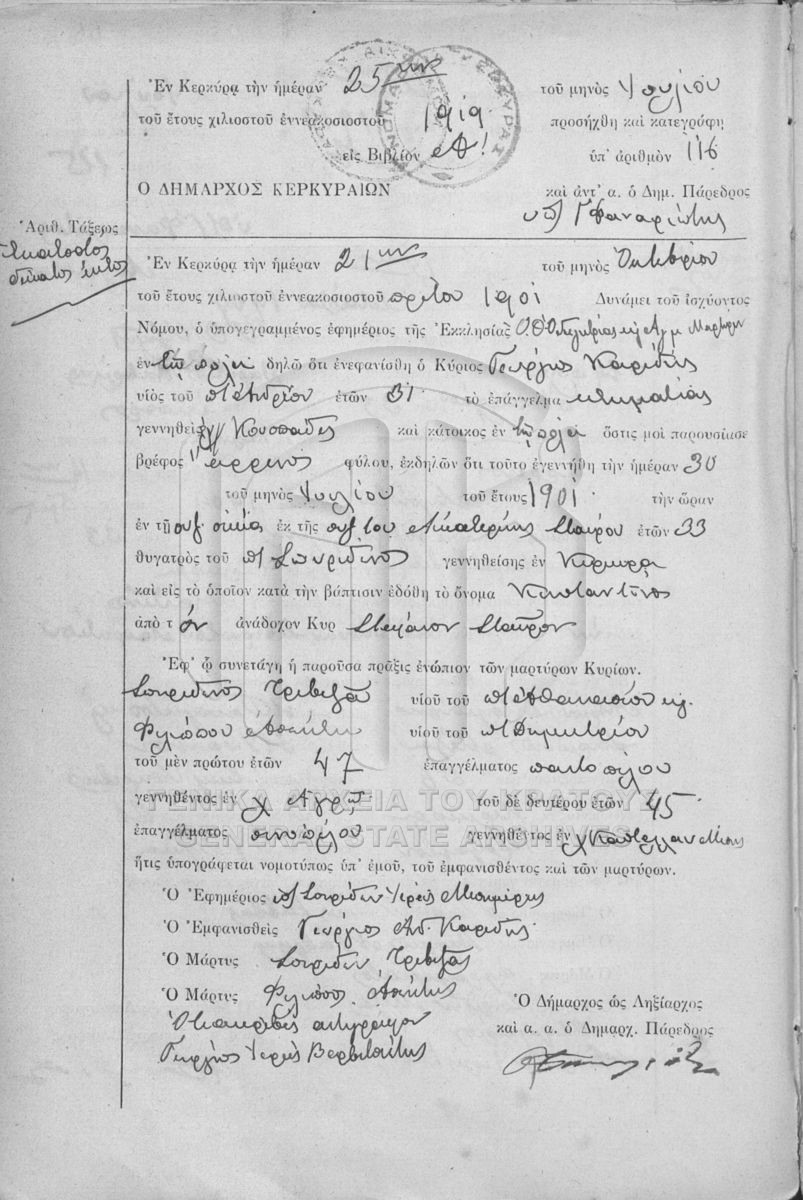 Ἐν Κερκύρᾳ τὴν ἡμέραν 25ην τοῦ μηνὸς Ἰουλίου
τοῦ ἔτους χιλιοστοῦ ἐννεακοσιοστοῦ 1919 προσήχθη καὶ κατεγράφη
εἰς Βιβλίον Α! ὑπ' ἀριθμὸν 116
Ο ΔΗΜΑΡΧΟΣ ΚΕΡΚΥΡΑΙΩΝ καὶ ἀντ' α. ὁ Δημ. Πάρεδρος
Φαναριώτης
Ἀριθ. Τάξεως
Ἑκατοστὸς
δέκατος ἕκτος
Ἐν Κερκύρᾳ τὴν ἡμέραν 21ην τοῦ μηνὸς Ὀκτωβρίου
τοῦ ἔτους χιλιοστοῦ ἐννεακοσιοστοῦ πρώτου 1901 Δυνάμει τοῦ ἰσχύοντος
Νόμου, ὁ ὑπογεγραμμένος ἐφημέριος τῆς Ἐκκλησίας
ἐν τῇ πόλει δηλῶ ὅτι ἐνεφανίσθη ὁ Κύριος Γεώργιος Καρύδης
υἱὸς τοῦ ποτ Ἀνδρέου ἐτῶν 31 τὸ ἐπάγγελμα κτηματίας
γεννηθεὶς καὶ κάτοικος ἐν τῇ πόλει ὅστις μοι παρουσίασε
βρέφος ἄρρενος φύλου, ἐκδηλῶν ὅτι τοῦτο ἐγεννήθη τὴν ἡμέραν 30
τοῦ μηνὸς Ἰουλίου τοῦ ἔτους 1901 τὴν ὥραν
ἐν τῇ οἰκίᾳ ἐκ τῆς συζ. του Αἰκατερίνης Σταύρου ἐτῶν 33
θυγατρὸς τοῦ π. Σπυρίδωνος γεννηθείσης ἐν Κέρκυρᾳ
καὶ εἰς τὸ ὁποῖον κατὰ τὴν βάπτισιν ἐδόθη τὸ ὄνομα Κωνσταντῖνος
ἀπὸ τ όν ἀνάδοχον Κυρ Στέφανον Σταῦρον
Ἐφ' ᾧ συνετάγη ἡ παροῦσα πρᾶξις ἐνώπιον τῶν μαρτύρων Κυρίων.
Σπυρίδωνος Τριβυζᾶ υἱοῦ τοῦ π. Ἀθανασίου κ.
Φιλίππου υἱοῦ τοῦ π. Δημητρίου
τοῦ μὲν πρώτου ἐτῶν 47 ἐπαγγέλματος παντοπώλου
γεννηθέντος ἐν χ. Ἀγρῷ τοῦ δὲ δευτέρου ἐτῶν 45
ἐπαγγέλματος οἰνοπώλου γεννηθέντος ἐν
ἥτις ὑπογράφεται νομοτύπως ὑπ' ἐμοῦ, τοῦ ἐμφανισθέντος καὶ τῶν μαρτύρων.
Ὁ Ἐφημέριος Σπυρίδων Ἱερεὺς
Ὁ Ἐμφανισθεὶς Γεώργιος Ανδ. Καρύδης
Ὁ Μάρτυς Σπυρίδων Τριβυζᾶς
Ὁ Μάρτυς Φίλιππος
Ὁ Δήμαρχος ὡς Ληξίαρχος
Διὰ ἀκριβὲς ἀντίγραφον
καὶ α. α. ὁ Δημαρχ. Πάρεδρος
Γεώργιος Ἱερεὺς Βερβιτσιώτης
ΓΕΝΙΚΑ ΑΡΧΕΙΑ ΤΟΥ ΚΡΑΤΟΥΣ
GENERAL STATE ARCHIVES